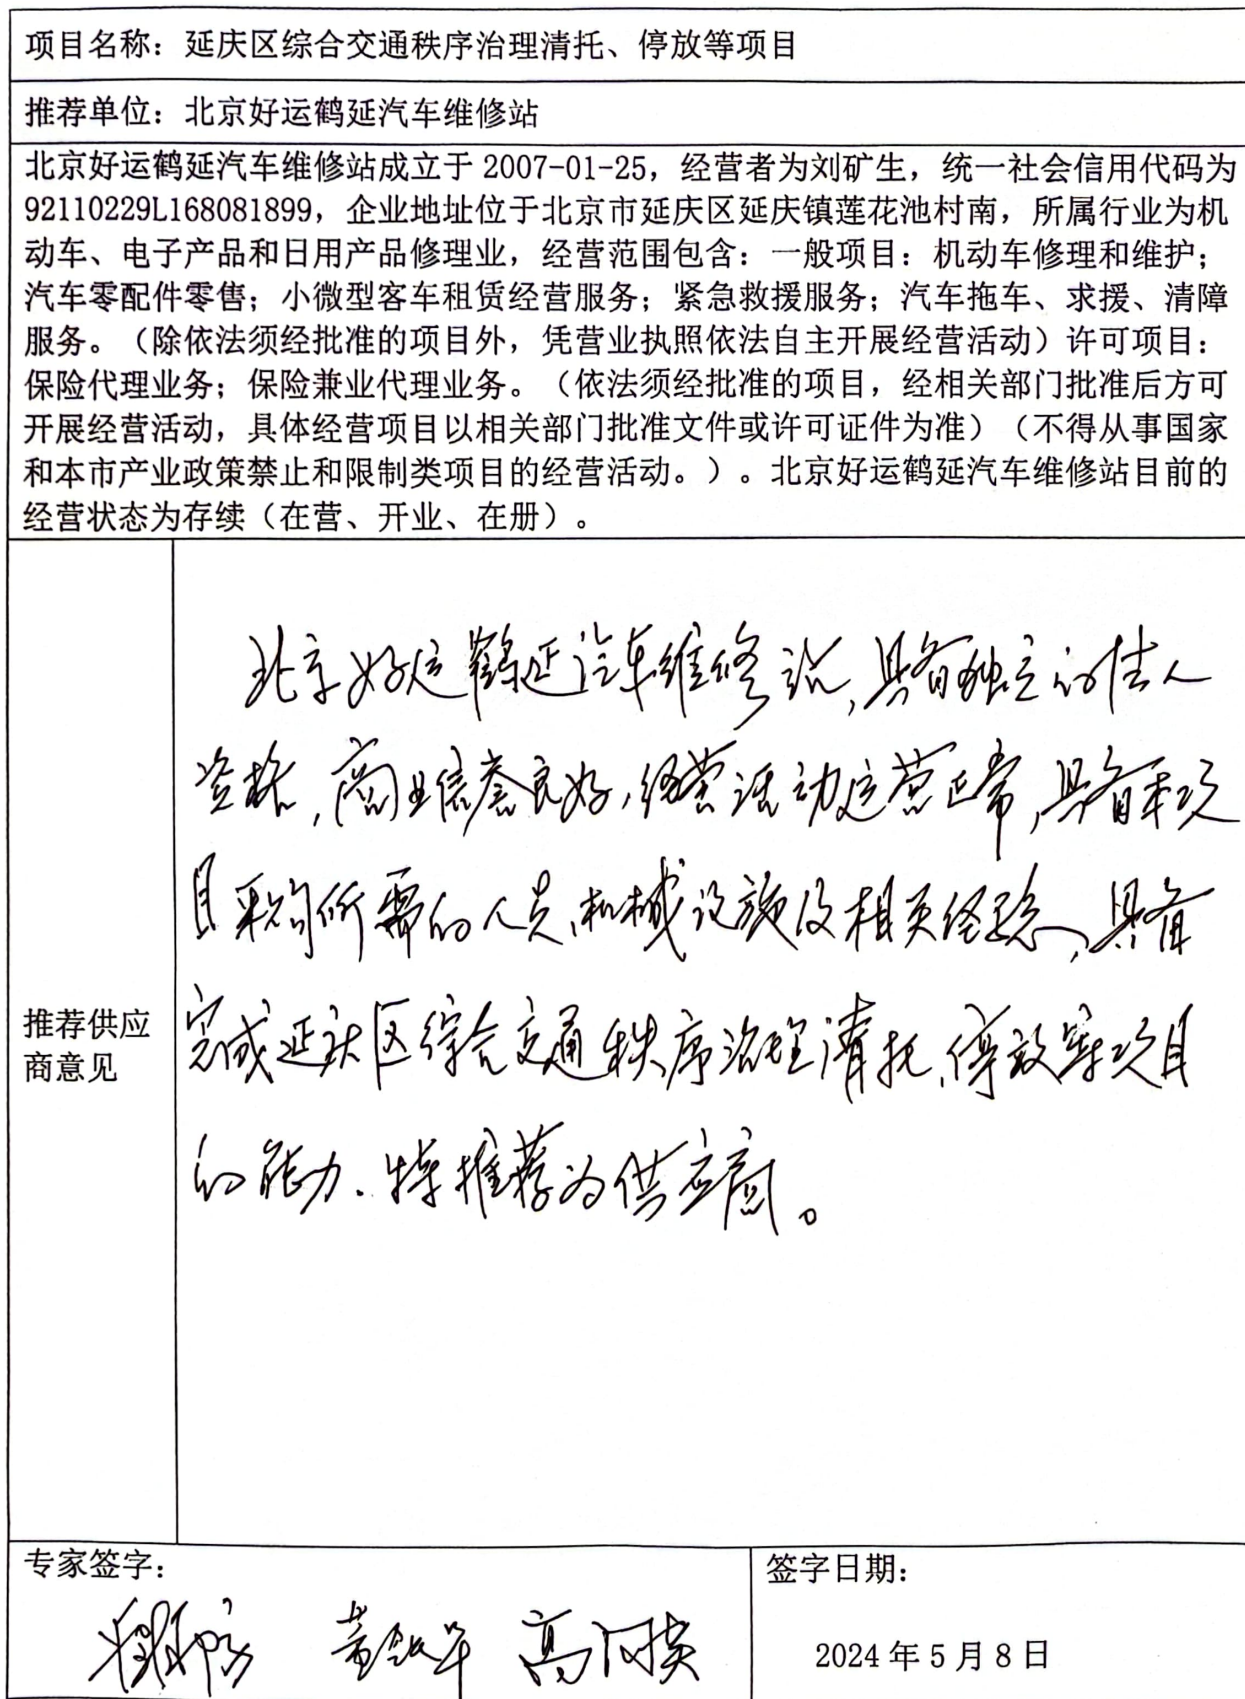 项目名称：延庆区综合交通秩序治理清托、停放等项目
推荐单位：北京好运鹤延汽车维修站
北京好运鹤延汽车维修站成立于 2007-01-25，经营者为刘矿生，统一社会信用代码为
92110229L168081899，企业地址位于北京市延庆区延庆镇莲花池村南，所属行业为机
动车、电子产品和日用产品修理业，经营范围包含：一般项目：机动车修理和维护；
汽车零配件零售；小微型客车租赁经营服务；紧急救援服务；汽车拖车、求援、清障
服务。（除依法须经批准的项目外，凭营业执照依法自主开展经营活动）许可项目：
保险代理业务；保险兼业代理业务。（依法须经批准的项目，经相关部门批准后方可
开展经营活动，具体经营项目以相关部门批准文件或许可证件为准）（不得从事国家
和本市产业政策禁止和限制类项目的经营活动。）。北京好运鹤延汽车维修站目前的
经营状态为存续（在营、开业、在册）。
推荐供应
商意见
北京好运鹤延汽车维修站,具备独立的法人
资格,商业信誉良好,经营活动运营正常,具备本项
目采购所需的人员、机械设施及相关经验,具备
完成延庆区综合交通秩序治理清托、停放等项目
的能力.特推荐为供应商。
专家签字：
签字日期：
2024 年 5 月 8 日